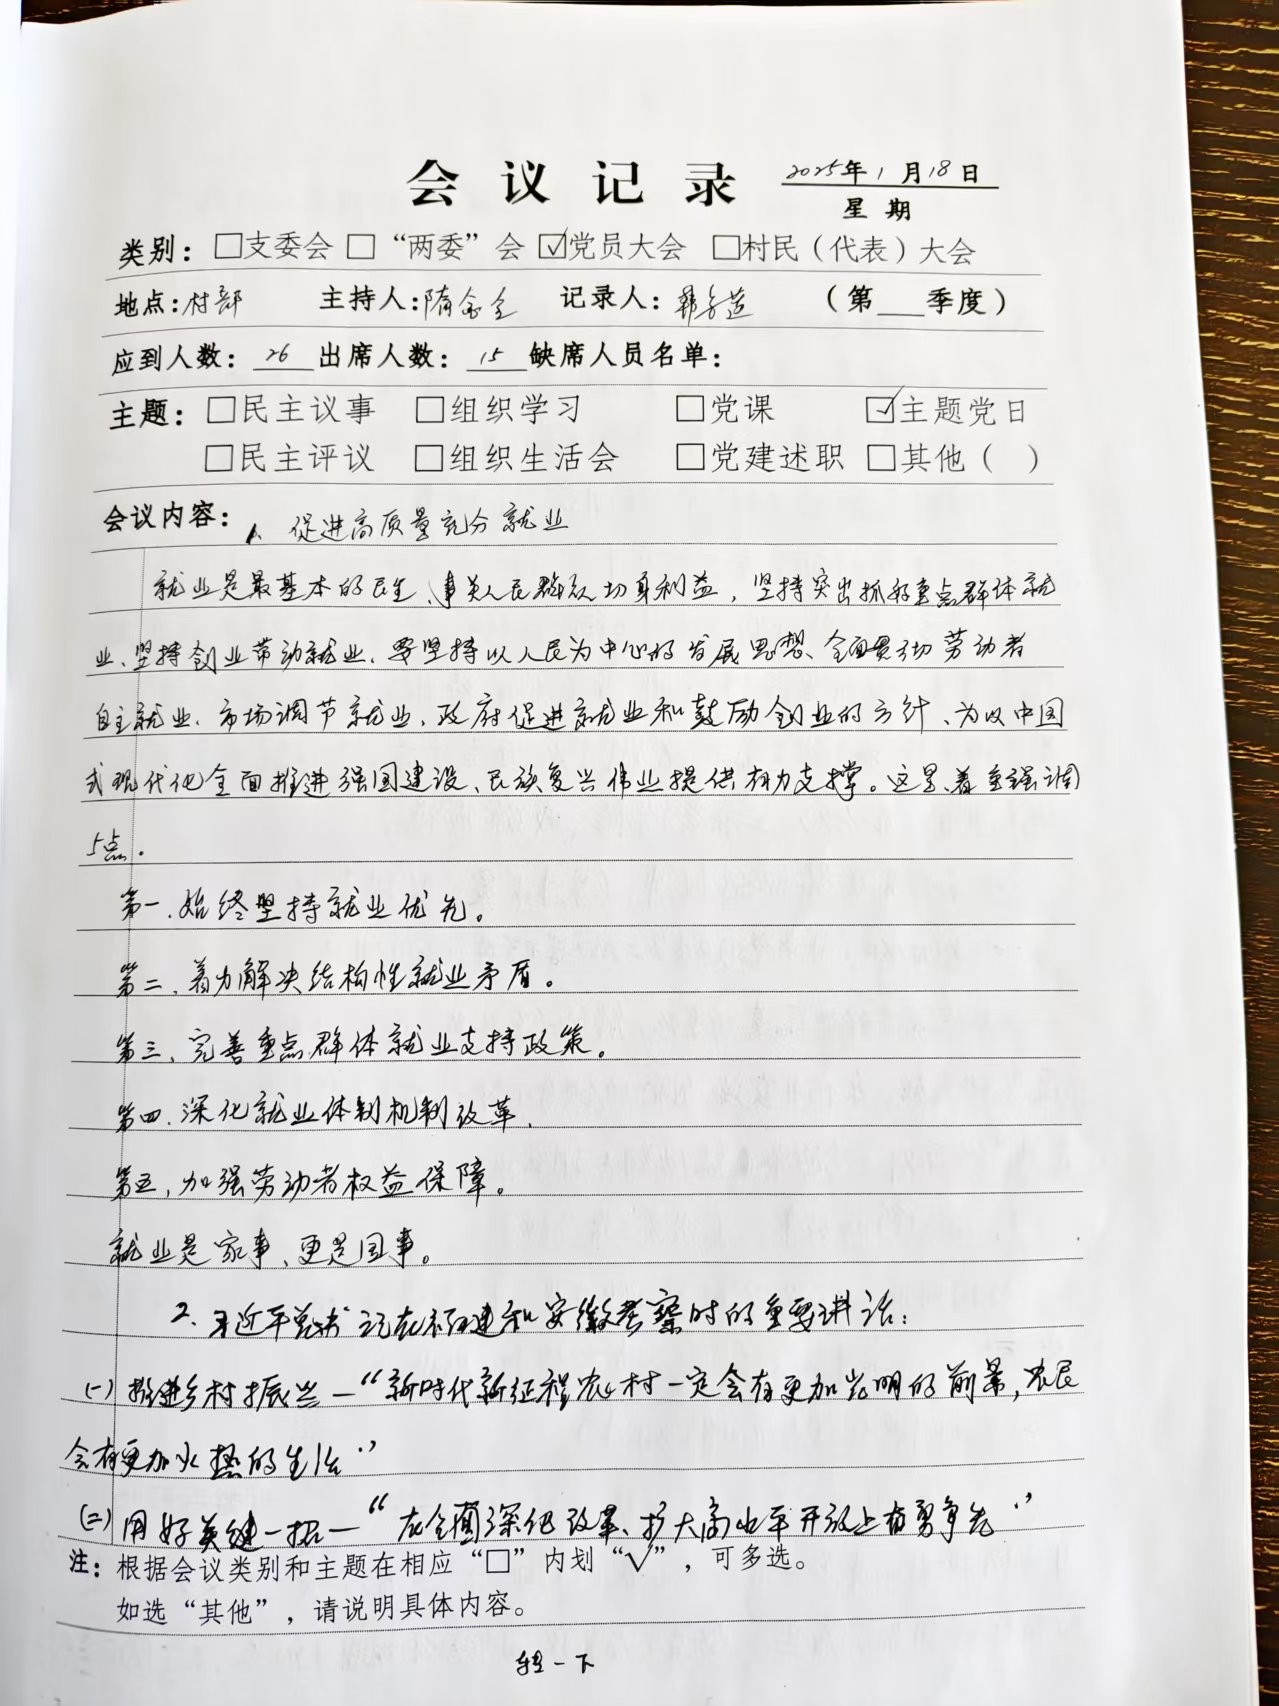 会议记录 2025年1月18日
星期
类别：□支委会 □“两委”会 ☑党员大会 □村民（代表）大会
地点：村部 主持人：隋金全 记录人： （第 季度）
应到人数：26 出席人数：15 缺席人员名单：
主题：□民主议事 □组织学习 □党课 ☑主题党日
□民主评议 □组织生活会 □党建述职 □其他（ ）
会议内容：1、促进高质量充分就业
就业是最基本的民生、事关人民群众切身利益，坚持突出抓好重点群体就
业、坚持创业带动就业、要坚持以人民为中心的发展思想、全面贯彻劳动者
自主就业、市场调节就业、政府促进就业和鼓励创业的方针、为以中国
式现代化全面推进强国建设、民族复兴伟业提供有力支撑。这里、着重强调
5点.
第一、始终坚持就业优先。
第二、着力解决结构性就业矛盾。
第三、完善重点群体就业支持政策。
第四、深化就业体制机制改革、
第五，加强劳动者权益保障。
就业是家事、更是国事。
2、习近平总书记在福建和安徽考察时的重要讲话：
(一)推进乡村振兴—“新时代新征程农村一定会有更加光明的前景，农民
会有更加火热的生活”
(二)用好关键一招—“在全面深化改革、扩大高水平开放上奋勇争先”
注：根据会议类别和主题在相应“□”内划“√”，可多选。
如选“其他”，请说明具体内容。
转一下